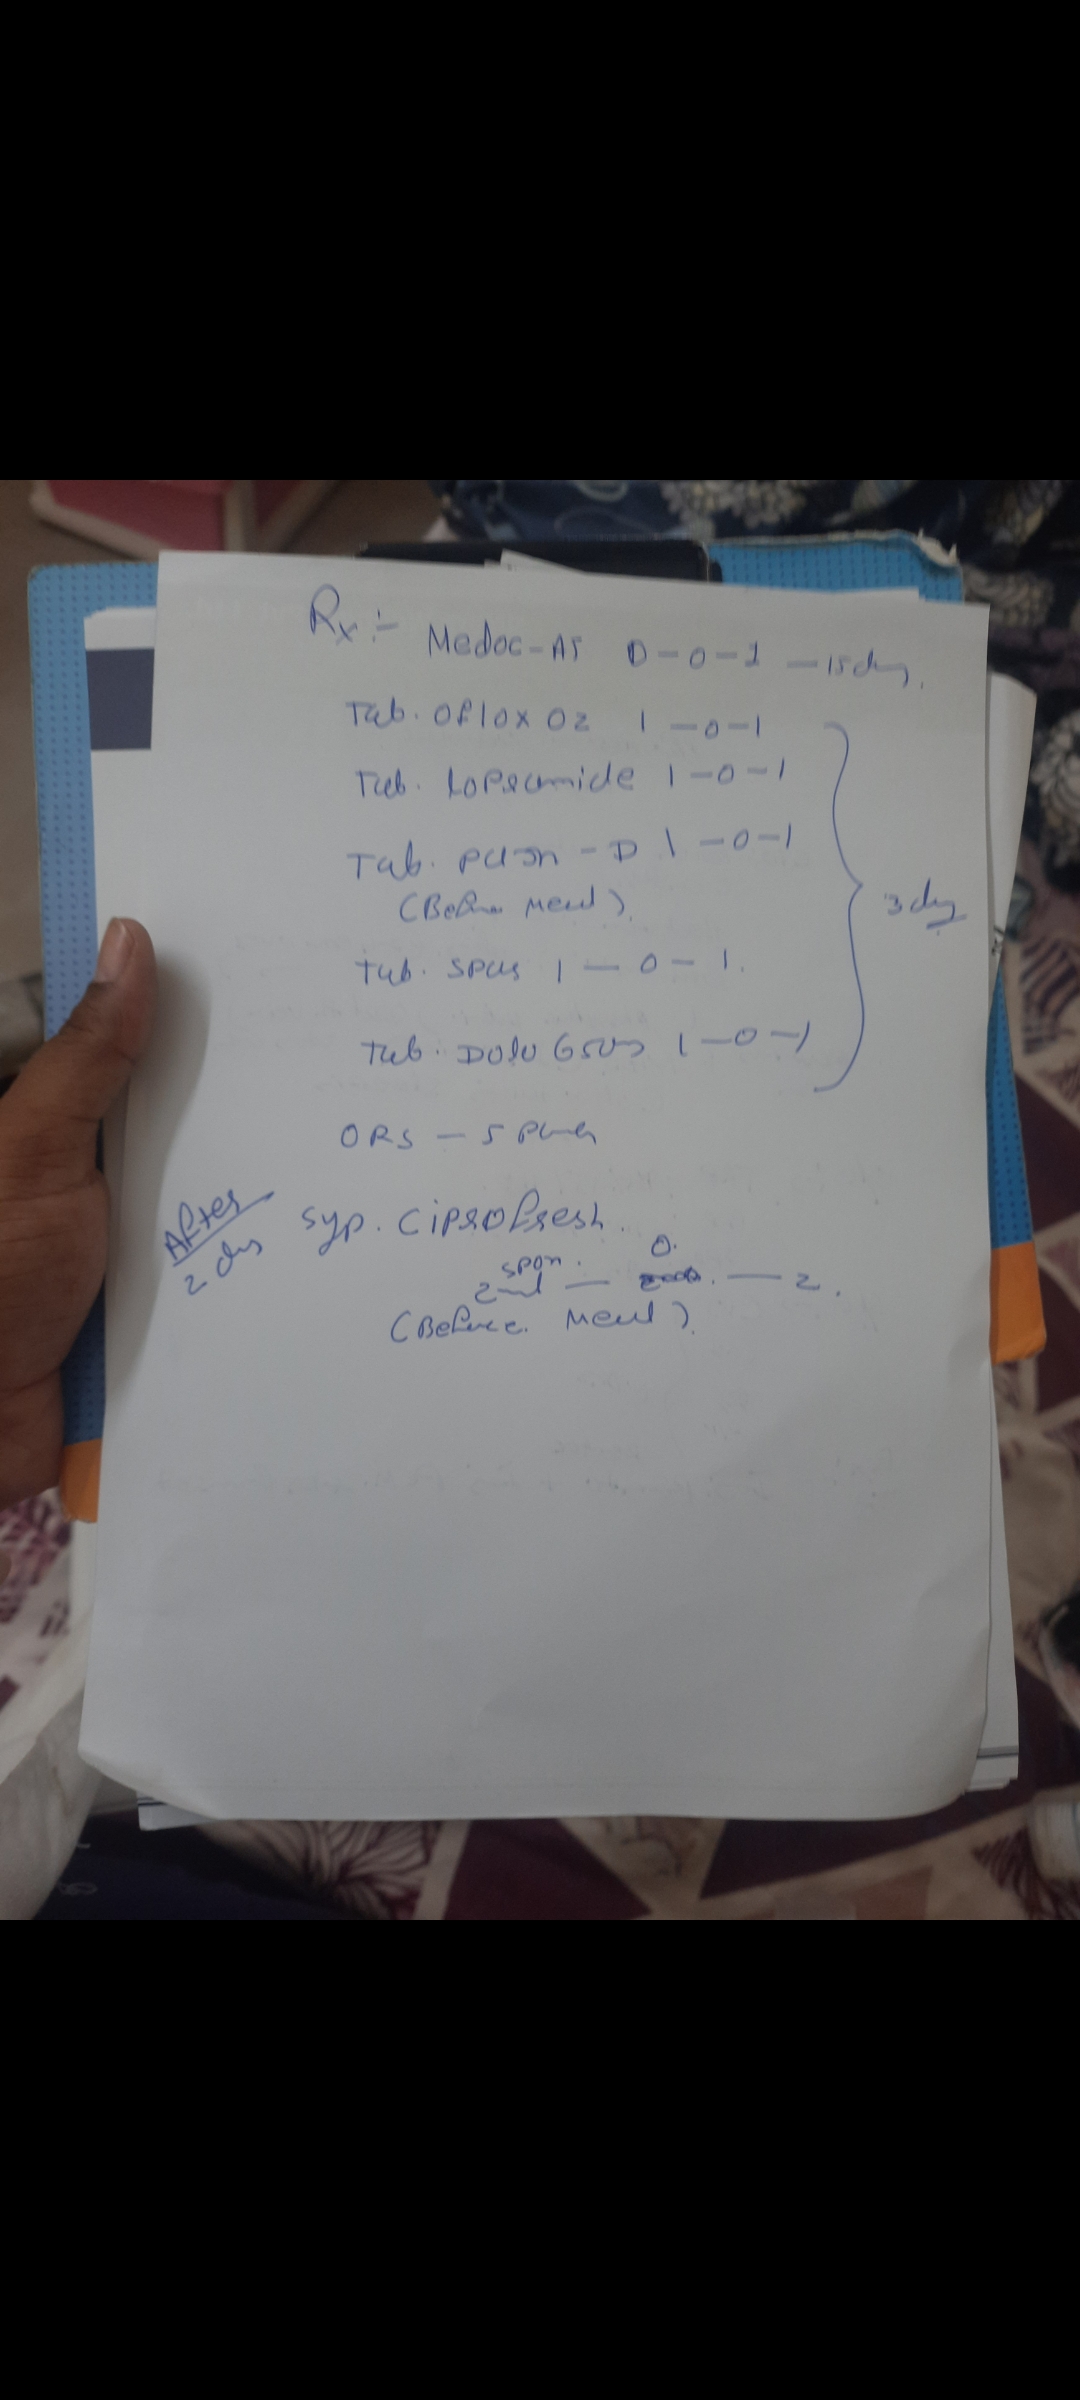 Rx :- Medoc-AT 0-0-1 - 15 day.
Tab. Oflox Oz 1-0-1
Tab. Loperamide 1-0-1
Tab. Pan-D 1-0-1
(Before meal)
3 day
Tab. Spas 1-0-1.
Tab. Dolo 650 1-0-1
ORS - 5
After 2 day
Syp. Ciprofresh.
spon. 0.
2 - - 2.
(Before meal)